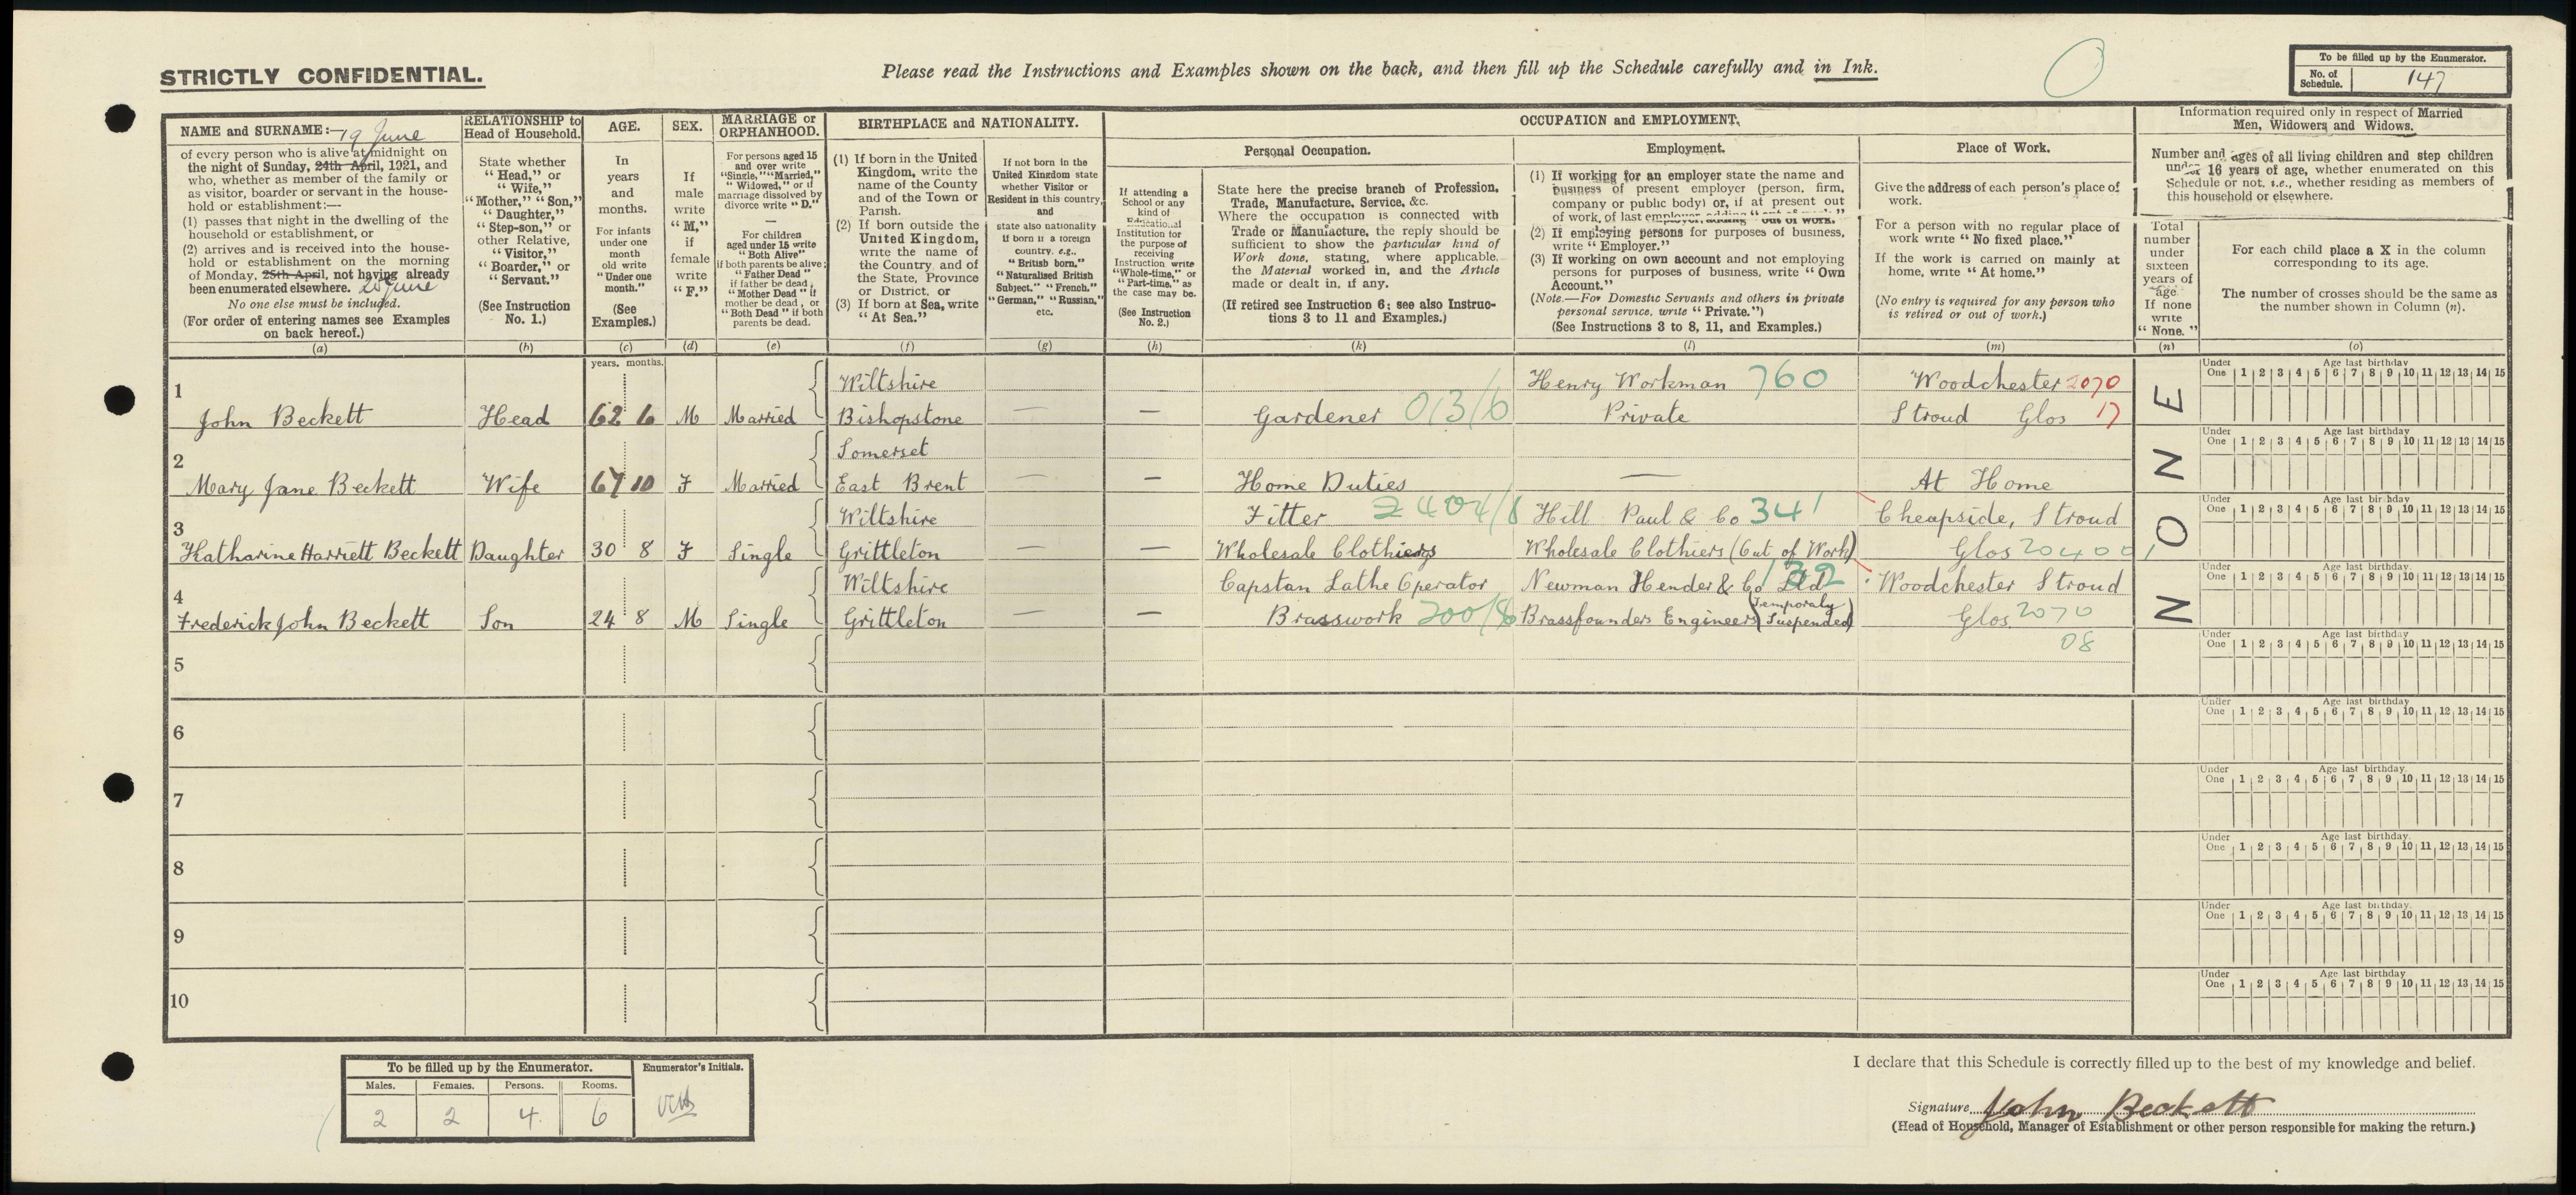 STRICTLY CONFIDENTIAL.
Please read the Instructions and Examples shown on the back, and then fill up the Schedule carefully and in Ink.
0
To be filled up by the Enumerator.
No. of Schedule. 147
NAME and SURNAME:— 19 June
of every person who is alive at midnight on
the night of Sunday, 24th April, 1921, and
who, whether as member of the family or
as visitor, boarder or servant in the house-
hold or establishment:—
(1) passes that night in the dwelling of the
household or establishment, or
(2) arrives and is received into the house-
hold or establishment on the morning
of Monday, 25th April, not having already
been enumerated elsewhere. 20 June
No one else must be included.
(For order of entering names see Examples
on back hereof.)
(a)
RELATIONSHIP to
Head of Household.
State whether
"Head," or
"Wife,"
"Mother," "Son,"
"Daughter,"
"Step-son," or
other Relative,
"Visitor,"
"Boarder," or
"Servant."
(See Instruction
No. 1.)
(b)
AGE.
In
years
and
months.
For infants
under one
month
old write
"Under one
month."
(See
Examples.)
(c)
SEX.
If
male
write
"M,"
if
female
write
"F."
(d)
MARRIAGE or
ORPHANHOOD.
For persons aged 15
and over write
"Single," "Married,"
"Widowed," or if
marriage dissolved by
divorce write "D."
—
For children
aged under 15 write
"Both Alive"
if both parents be alive;
"Father Dead"
if father be dead,
"Mother Dead" if
mother be dead, or
"Both Dead" if both
parents be dead.
(e)
BIRTHPLACE and NATIONALITY.
(1) If born in the United
Kingdom, write the
name of the County
and of the Town or
Parish.
(2) If born outside the
United Kingdom,
write the name of
the Country, and of
the State, Province
or District, or
(3) If born at Sea, write
"At Sea."
(f)
If not born in the
United Kingdom state
whether Visitor or
Resident in this country,
and
state also nationality
if born in a foreign
country. e.g.,
"British born,"
"Naturalised British
Subject," "French,"
"German," "Russian,"
etc.
(g)
OCCUPATION and EMPLOYMENT.
If attending a
School or any
kind of
Educational
Institution for
the purpose of
receiving
Instruction write
"Whole-time," or
"Part-time," as
the case may be.
(See Instruction
No. 2.)
(h)
Personal Occupation.
State here the precise branch of Profession,
Trade, Manufacture, Service, &c.
Where the occupation is connected with
Trade or Manufacture, the reply should be
sufficient to show the particular kind of
Work done, stating, where applicable,
the Material worked in, and the Article
made or dealt in, if any.
(If retired see Instruction 6; see also Instruc-
tions 3 to 11 and Examples.)
(k)
Employment.
(1) If working for an employer state the name and
business of present employer (person, firm,
company or public body) or, if at present out
of work, of last employer, adding "out of work."
(2) If employing persons for purposes of business,
write "Employer."
(3) If working on own account and not employing
persons for purposes of business, write "Own
Account."
(Note.—For Domestic Servants and others in private
personal service, write "Private.")
(See Instructions 3 to 8, 11, and Examples.)
(l)
Place of Work.
Give the address of each person's place of
work.
For a person with no regular place of
work write "No fixed place."
If the work is carried on mainly at
home, write "At home."
(No entry is required for any person who
is retired or out of work.)
(m)
Information required only in respect of Married
Men, Widowers and Widows.
Number and ages of all living children and step children
under 16 years of age, whether enumerated on this
Schedule or not, i.e., whether residing as members of
this household or elsewhere.
Total
number
under
sixteen
years of
age
If none
write
"None."
(n)
For each child place a X in the column
corresponding to its age.
The number of crosses should be the same as
the number shown in Column (n).
(o)
years. months.
1
Wiltshire Henry Workman 760 Woodchester 2070
John Beckett Head 62 6 M Married Bishopstone — — Gardener 013/6 Private Stroud Glos 17
2
Somerset
Mary Jane Beckett Wife 67 10 F Married East Brent — — Home Duties — At Home
3
Wiltshire Fitter 2404/8 Hill Paul & Co 341 Cheapside, Stroud
Katharine Harriett Beckett Daughter 30 8 F Single Grittleton — — Wholesale Clothiers Wholesale Clothiers (Out of Work) Glos 20400
4
Wiltshire Capstan Lathe Operator Newman Hender & Co Ltd Woodchester Stroud
Frederick John Beckett Son 24 8 M Single Grittleton — — Brasswork 200/8 Brassfounders Engineers (Temporaly Suspended) Glos 2070
08
NONE
5
6
7
8
9
10
Under One Age last birthday
1 2 3 4 5 6 7 8 9 10 11 12 13 14 15
Under One Age last birthday
1 2 3 4 5 6 7 8 9 10 11 12 13 14 15
Under One Age last birthday
1 2 3 4 5 6 7 8 9 10 11 12 13 14 15
Under One Age last birthday
1 2 3 4 5 6 7 8 9 10 11 12 13 14 15
Under One Age last birthday
1 2 3 4 5 6 7 8 9 10 11 12 13 14 15
Under One Age last birthday
1 2 3 4 5 6 7 8 9 10 11 12 13 14 15
Under One Age last birthday
1 2 3 4 5 6 7 8 9 10 11 12 13 14 15
Under One Age last birthday.
1 2 3 4 5 6 7 8 9 10 11 12 13 14 15
Under One Age last birthday.
1 2 3 4 5 6 7 8 9 10 11 12 13 14 15
Under One Age last birthday
1 2 3 4 5 6 7 8 9 10 11 12 13 14 15
To be filled up by the Enumerator.
Enumerator's Initials.
Males. Females. Persons. Rooms.
2 2 4. 6
I declare that this Schedule is correctly filled up to the best of my knowledge and belief.
Signature John Beckett
(Head of Household, Manager of Establishment or other person responsible for making the return.)